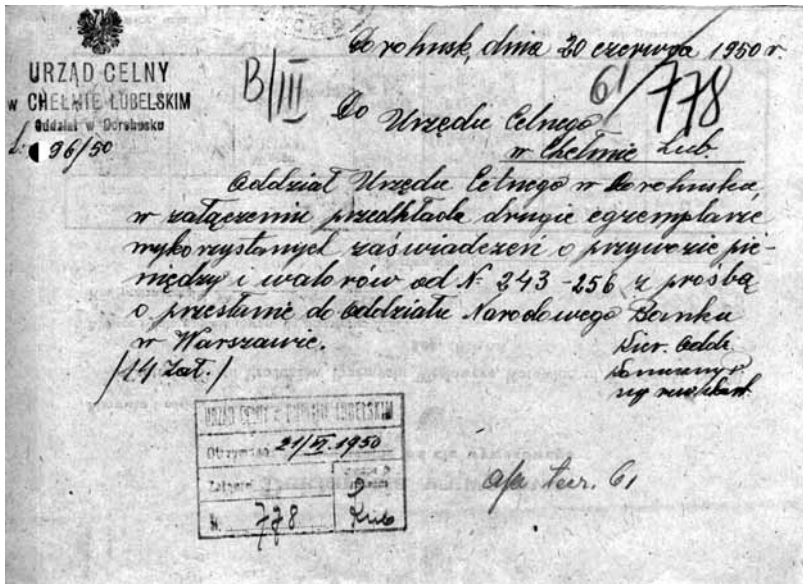 Dorohusk, dnia 20 czerwca 1950 r.
URZĄD CELNY
w CHEŁMIE LUBELSKIM
Oddział w Dorohusku
L: 96/50
B/III
61/778
Do Urzędu Celnego
w Chełmie Lub.
Oddział Urzędu Celnego w Dorohusku
w załączeniu przedkłada drugie egzemplarze
wykorzystanych zaświadczeń o przywozie pie-
niędzy i walorów od N. 243-256 z prośbą
o przesłanie do Oddziału Narodowego Banku
w Warszawie.
/14 Zał./
Kier. Oddz.
URZĄD CELNY w CHEŁMIE LUBELSKIM
Otrzymano 21/VI.1950
Nr. 778
a/a ter. 61